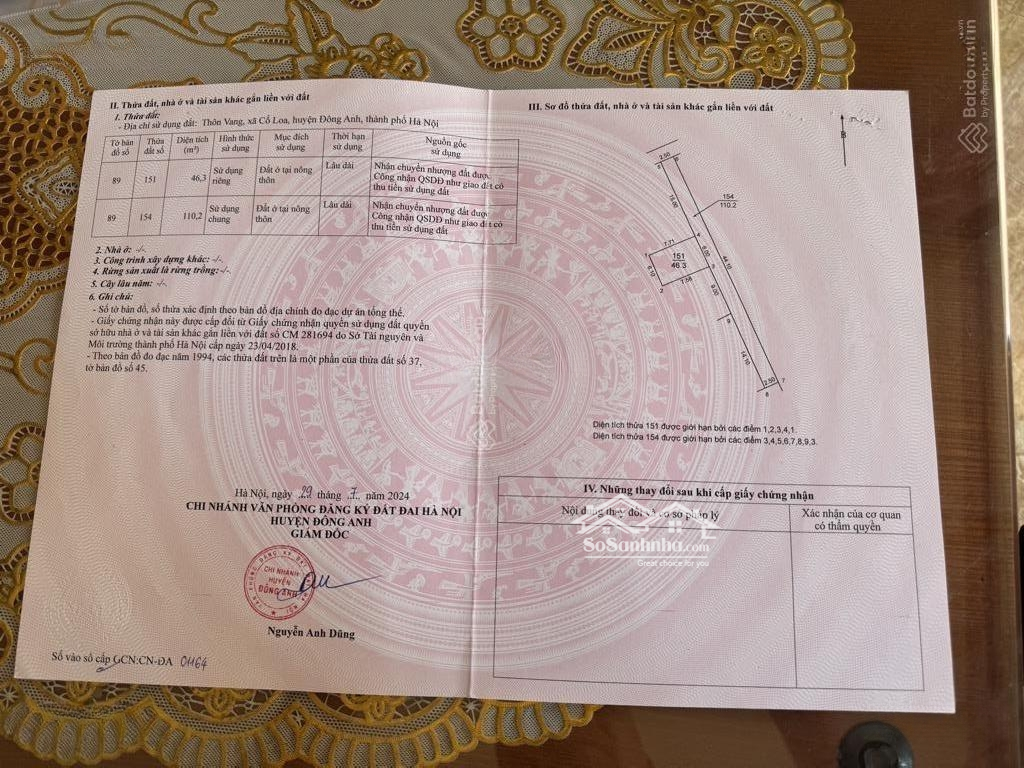 II. Thửa đất, nhà ở và tài sản khác gắn liền với đất
1. Thửa đất:
- Địa chỉ sử dụng đất: Thôn Vang, xã Cổ Loa, huyện Đông Anh, thành phố Hà Nội
Tờ bản đồ số | Thửa đất số | Diện tích (m²) | Hình thức sử dụng | Mục đích sử dụng | Thời hạn sử dụng | Nguồn gốc sử dụng
89 | 151 | 46,3 | Sử dụng riêng | Đất ở tại nông thôn | Lâu dài | Nhận chuyển nhượng đất được Công nhận QSDĐ như giao đất có thu tiền sử dụng đất
89 | 154 | 110,2 | Sử dụng chung | Đất ở tại nông thôn | Lâu dài | Nhận chuyển nhượng đất được Công nhận QSDĐ như giao đất có thu tiền sử dụng đất
2. Nhà ở: -/-
3. Công trình xây dựng khác: -/-
4. Rừng sản xuất là rừng trồng: -/-
5. Cây lâu năm: -/-
6. Ghi chú:
- Số tờ bản đồ, số thửa xác định theo bản đồ địa chính đo đạc dự án tổng thể.
- Giấy chứng nhận này được cấp đổi từ Giấy chứng nhận quyền sử dụng đất quyền
sở hữu nhà ở và tài sản khác gắn liền với đất số CM 281694 do Sở Tài nguyên và
Môi trường thành phố Hà Nội cấp ngày 23/04/2018.
- Theo bản đồ đo đạc năm 1994, các thửa đất trên là một phần của thửa đất số 37,
tờ bản đồ số 45.
Hà Nội, ngày 29 tháng 7 năm 2024
CHI NHÁNH VĂN PHÒNG ĐĂNG KÝ ĐẤT ĐAI HÀ NỘI
HUYỆN ĐÔNG ANH
GIÁM ĐỐC
CHI NHÁNH
HUYỆN
ĐÔNG ANH
Nguyễn Anh Dũng
Số vào sổ cấp GCN:CN-ĐA 01164
III. Sơ đồ thửa đất, nhà ở và tài sản khác gắn liền với đất
B
2.50
5
6
15.00
154
110.2
7.71
4
1
151
46.3
6.00
44.10
6.10
3
2
7.58
9.00
9
14.10
2.50
7
8
Diện tích thửa 151 được giới hạn bởi các điểm 1,2,3,4,1.
Diện tích thửa 154 được giới hạn bởi các điểm 3,4,5,6,7,8,9,3.
IV. Những thay đổi sau khi cấp giấy chứng nhận
Nội dung thay đổi và cơ sở pháp lý | Xác nhận của cơ quan có thẩm quyền
SoSanhnha.com
Great choice for you
Batdongsan
by PropertyGuru